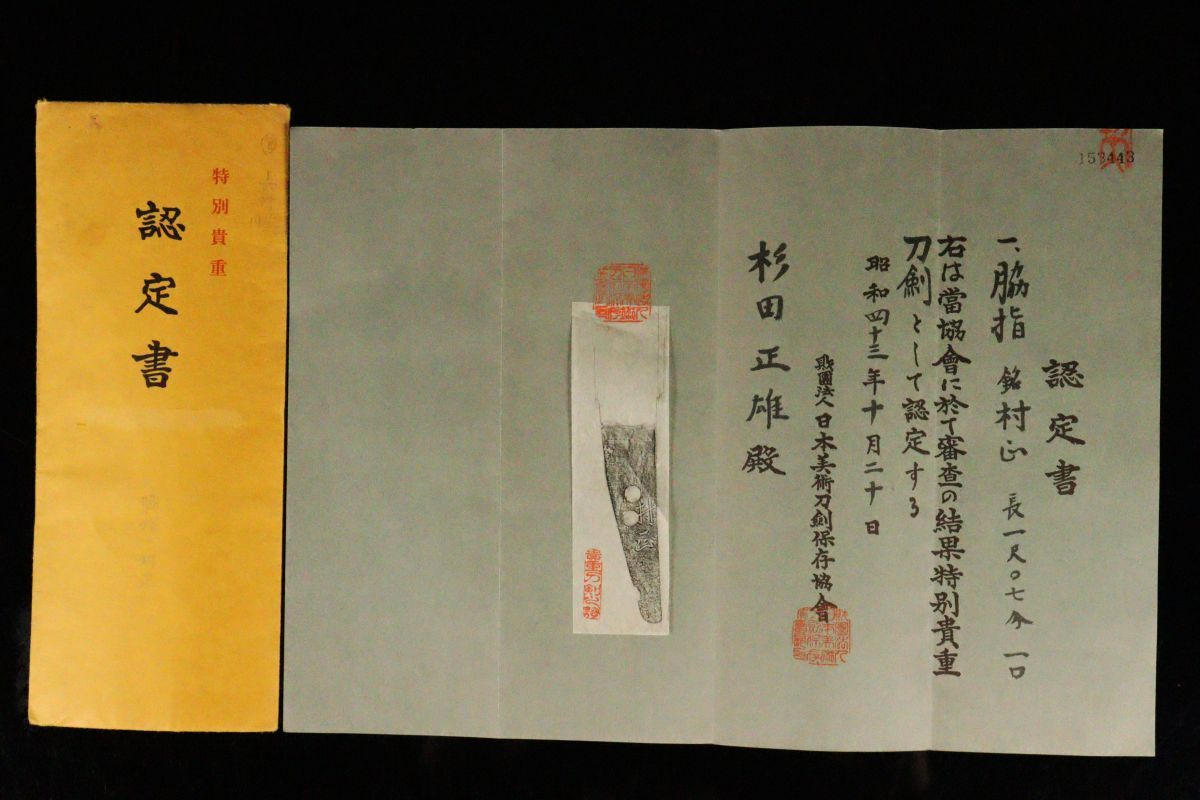 特別貴重
認定書
153443
認定書
一、脇指 銘村正 長一尺〇七分 一口
右は當協會に於て審査の結果特別貴重
刀劍として認定する
昭和四十三年十月二十日
財團法人日本美術刀劍保存協會
杉田正雄殿
村正